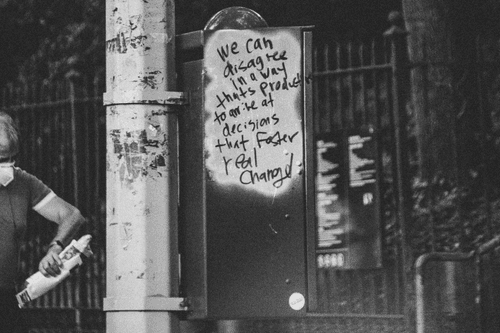 We Can
disagree
in a way
that's product
to arrive at
decisions
that Foster
real
Change!